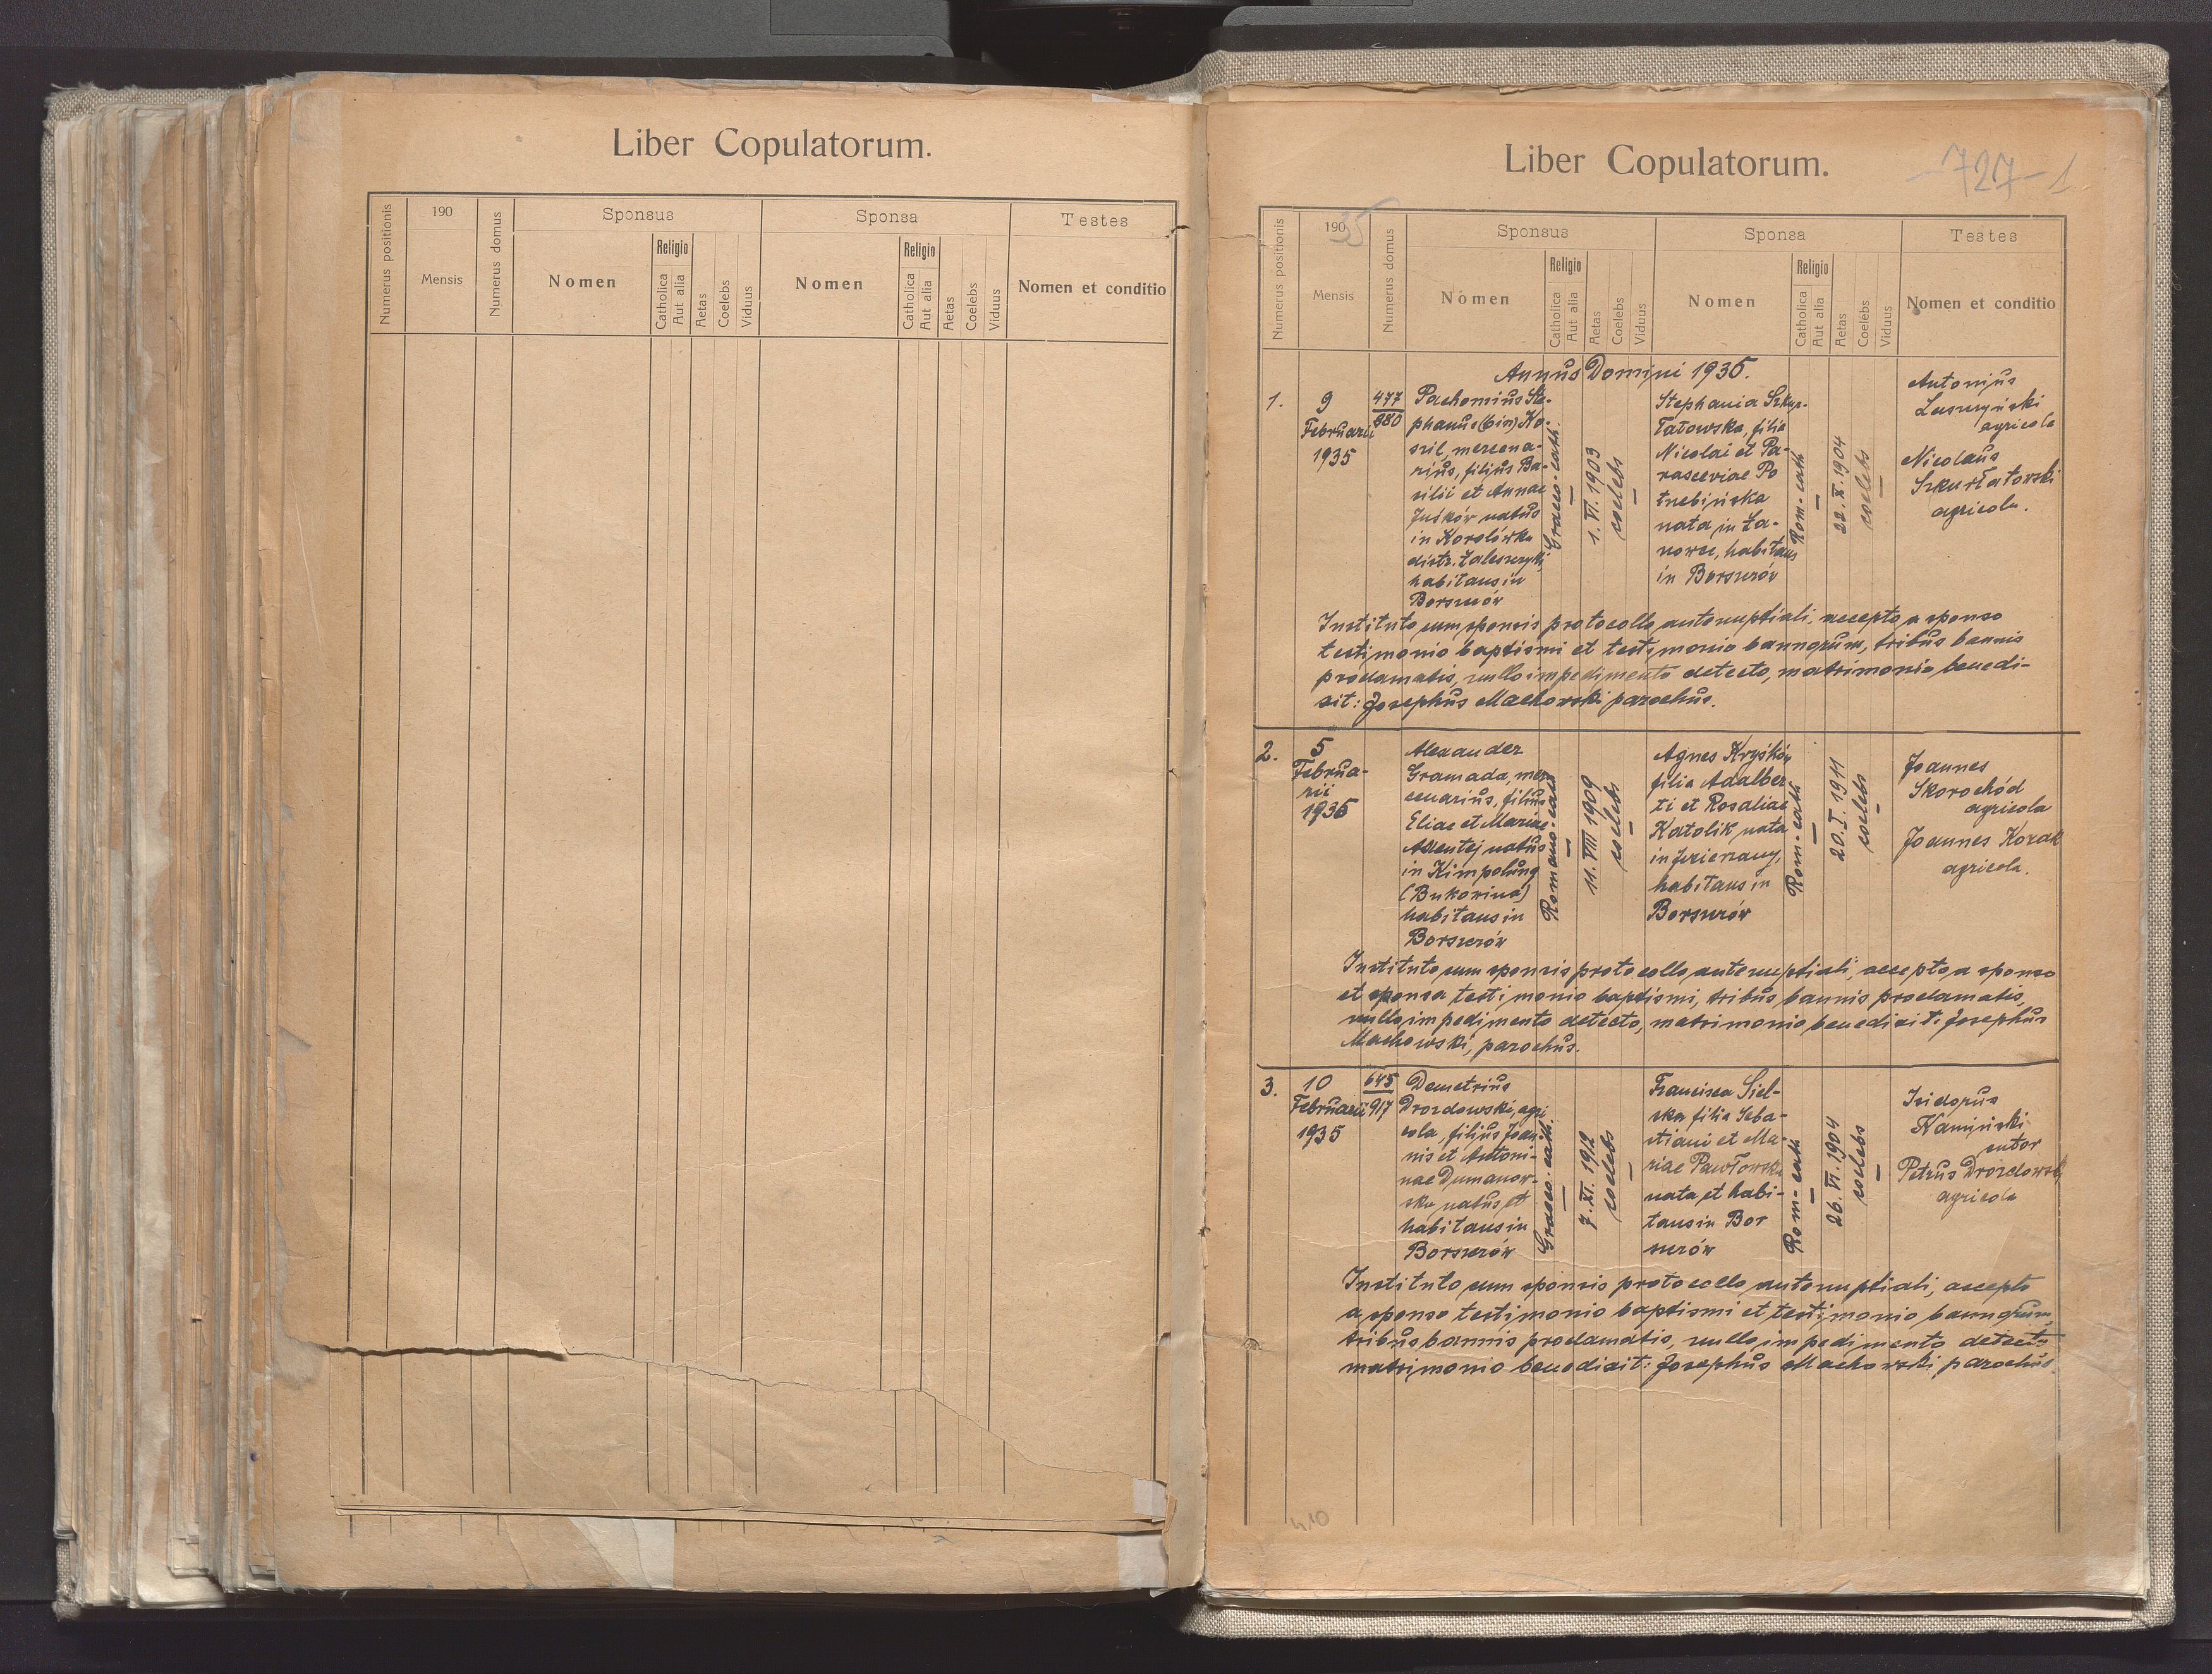 Liber Copulatorum.
Numerus positionis
190
Mensis
Numerus domus
Sponsus
Nomen
Religio
Catholica
Aut alia
Aetas
Coelebs
Viduus
Sponsa
Nomen
Religio
Catholica
Aut alia
Aetas
Coelebs
Viduus
Testes
Nomen et conditio
Liber Copulatorum.
-727-1
Numerus positionis
19035
Mensis
Numerus domus
Sponsus
Nomen
Religio
Catholica
Aut alia
Aetas
Coelebs
Viduus
Sponsa
Nomen
Religio
Catholica
Aut alia
Aetas
Coelebs
Viduus
Testes
Nomen et conditio
Annus Domini 1935.
1.
9
Februarii
1935
477
880
Pachomius Ste-
phanus (bin) Ko-
sril, mercena-
rius, filius Ba-
silii et Annae
Juśków natus
in Korolówka
distr. Zaleszczyki,
habitans in
Borszczów
Graeco-cath.
1. VI. 1903
coelebs
Stephania Szkur-
łatowska, filia
Nicolai et Pa-
rasceviae Po
trebińska
nata in Ła-
nowce, habitans
in Borszczów
Rom-cath
22. X. 1904
coelebs
Antonius
Leszczyński
agricola
Nicolaus
Szkurłatowski
agricola.
Instituto cum sponsis protocollo antenuptiali, accepto a sponso
testimonio baptismi et testimonio bannorum, tribus bannis
proclamatis, nullo impedimento detecto, matrimonio benedi-
xit: Josephus Machowski parochus.
2.
5
Februa-
rii
1935
Alexander
Gramada, mer
cenarius, filius
Eliae et Mariae
Axentej natus
in Kimpolung
(Bukovina)
habitans in
Borszczów
Romano-cath
11. VIII 1909
coelebs
Agnes Kryśków
filia Adalber-
ti et Rosaliae
Katolik nata
in Jezierzany,
habitans in
Borszczów
Rom-cath
20. I. 1911
coelebs
Joannes
Skorochód
agricola
Joannes Kozak
agricola.
Instituto cum sponsis protocollo antenuptiali, accepto a sponso
et sponsa testimonio baptismi, tribus bannis proclamatis,
nullo impedimento detecto, matrimonio benedixit: Josephus
Machowski, parochus.
3.
10
Februarii
1935
645
917
Demetrius
Drozdowski, agri
cola, filius Joan-
nis et Antoni-
nae Dumanow-
ska natus et
habitans in
Borszczów
Graeco-cath.
7. XI. 1912
coelebs
Francisca Siel-
ska filia Seba-
stiani et Ma-
riae Pawłowska
nata et habi-
tans in Bor
szczów
Rom-cath
26. VI. 1904
coelebs
Isidorus
Kamiński
sutor
Petrus Drozdowski
agricola
Instituto cum sponsis protocollo antenuptiali, accepto
a sponso testimonio baptismi et testimonio bannorum,
tribus bannis proclamatis, nullo impedimento detecto
matrimonio benedixit: Josephus Machowski, parochus.
410